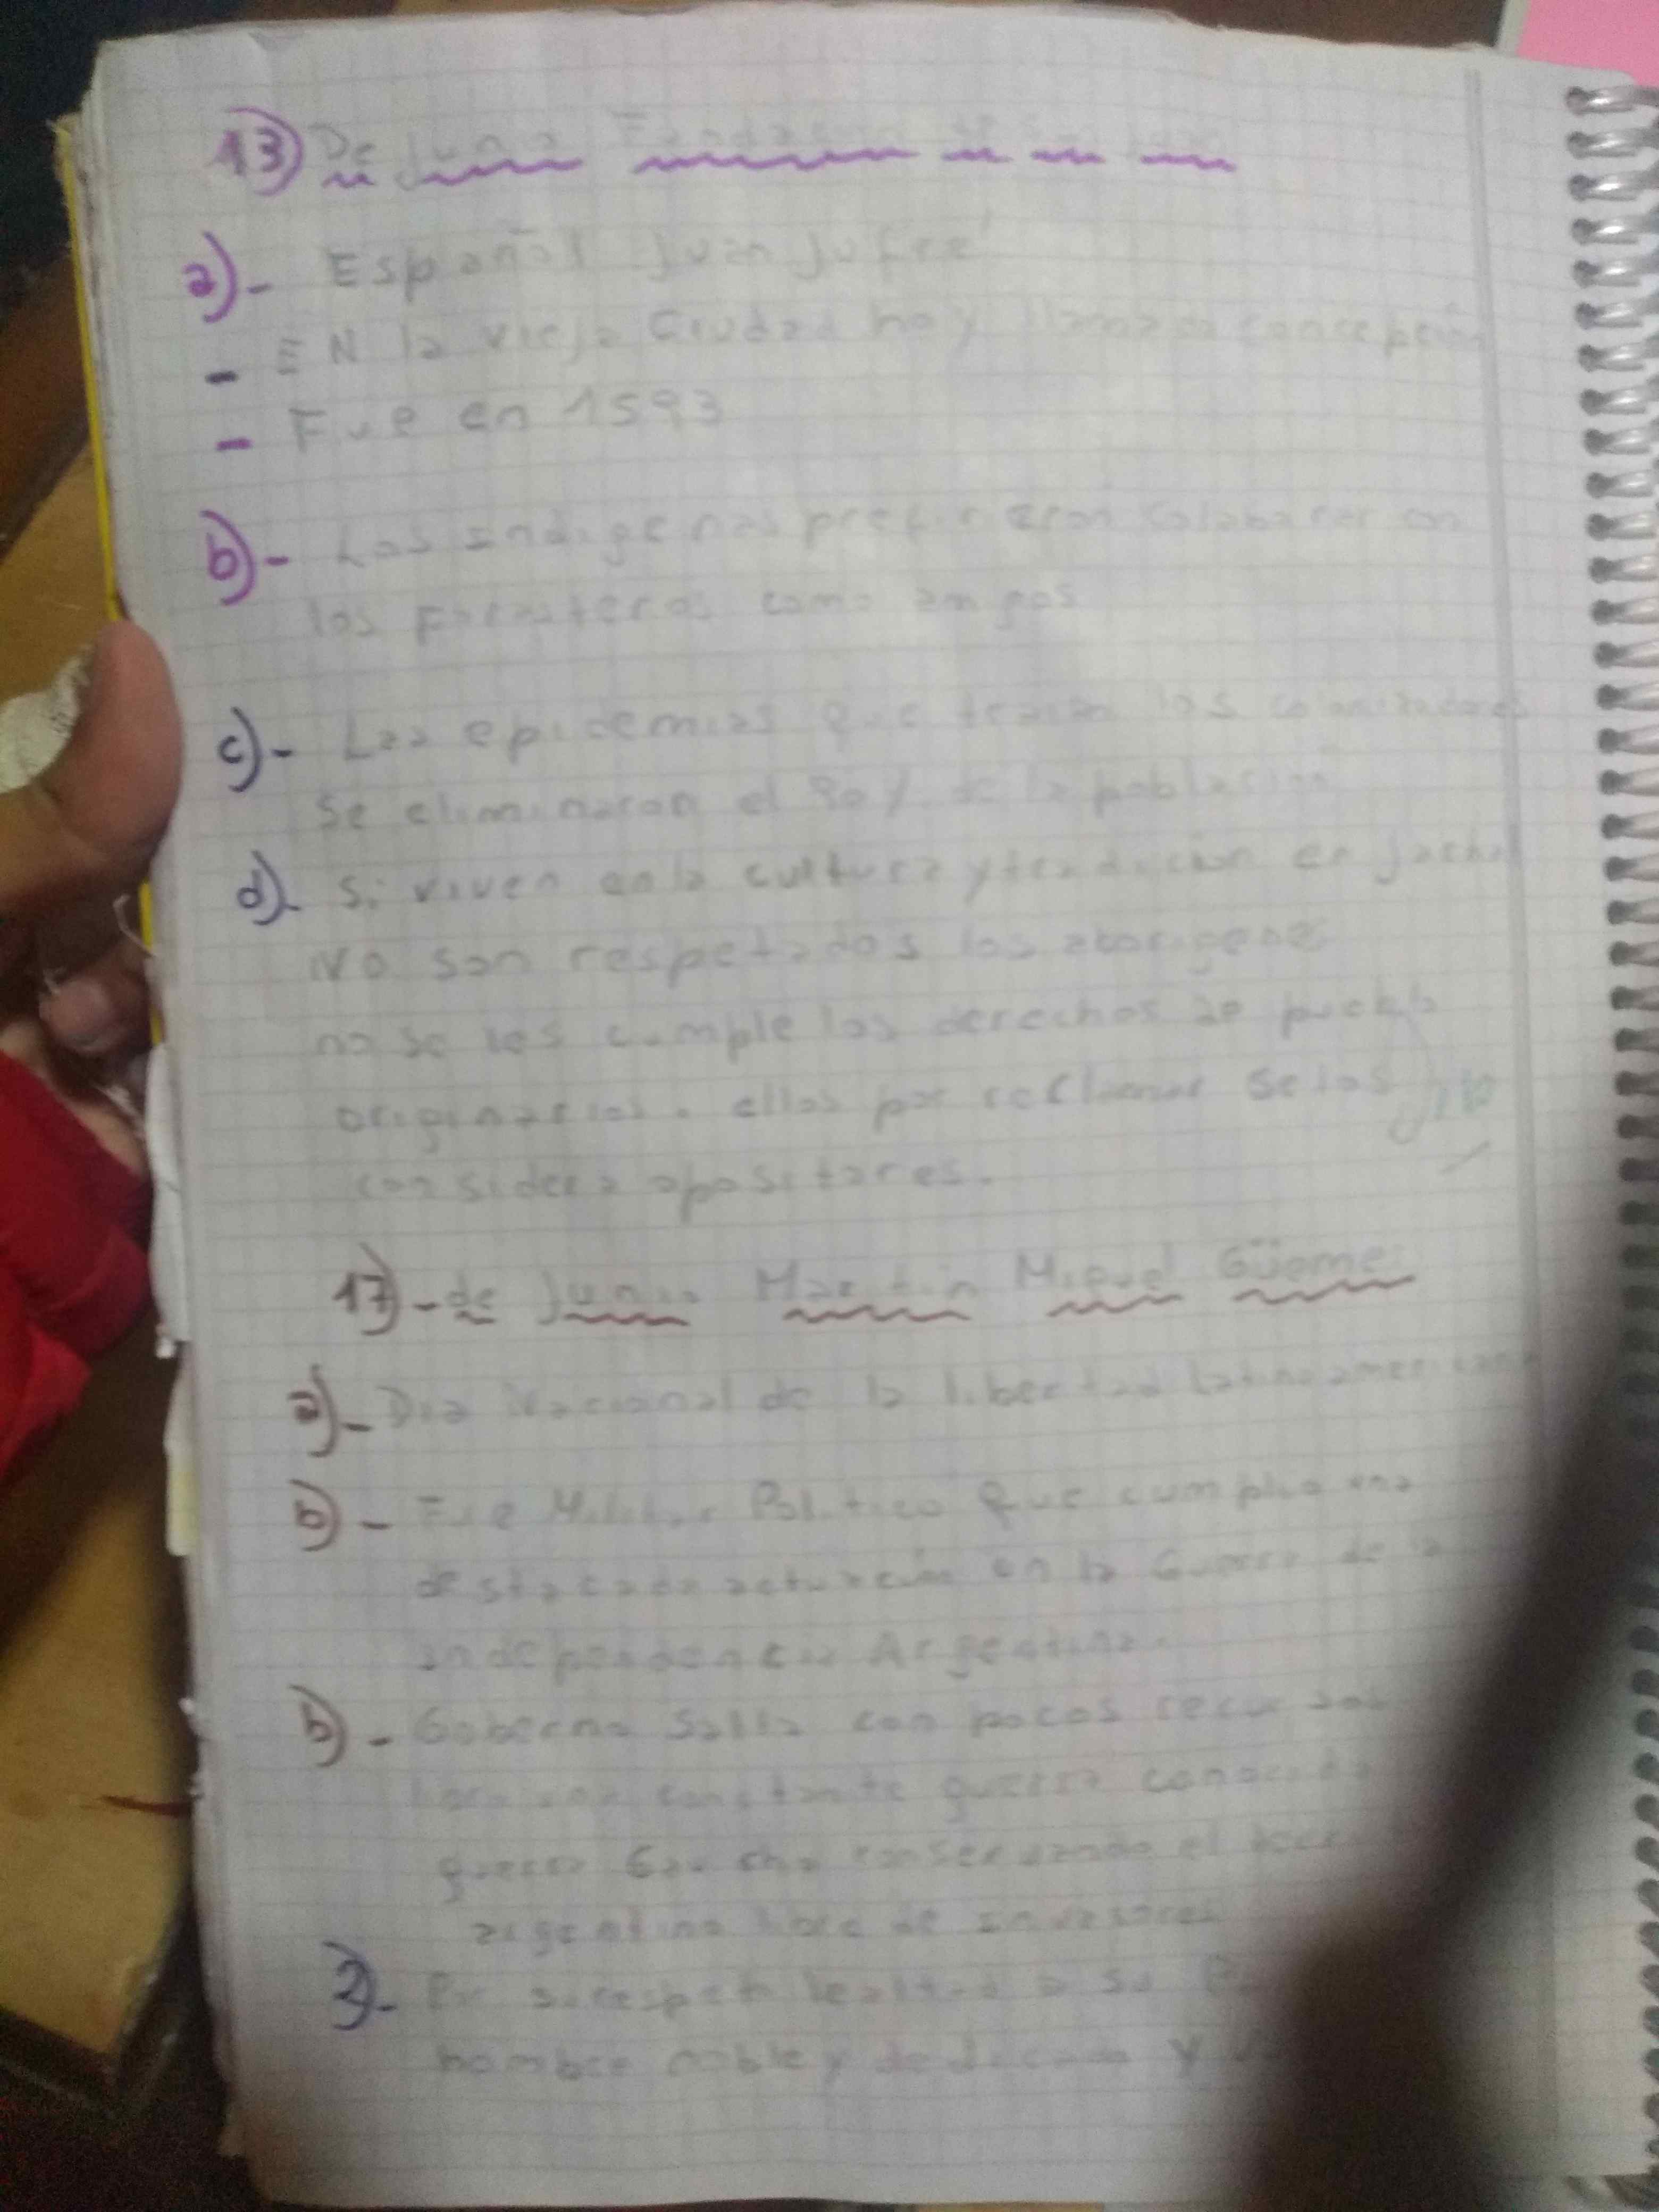 13) De Junio Fundación de San Juan
a)- Español Juan Jufré
- EN la vieja Ciudad hoy llamada concepción
- Fue en 1593
b)- Los indigenas prefirieron colabarar con
los Forasteros como amigos
c)- Las epidemias que traían los colonizadores
se eliminaron el 90% de la población
d)- Si viven en la cultura y tradición en Jachal
NO son respetados los aborigenes
no se les cumple los derechos de pueblo
originarios. ellos por reclamar se los
considera opositores.
17)- de Junio Martin Miguel Güemes
a)- Dia Nacional de la libertad latinoamericana
b)- Fue Militar Politico que cumplio una
destacada actuación en la Guerra de la
independencia Argentina.
b)- Goberno Salta con pocos recursos
una constante guerra conocida
guerra Gaucha conservando el
argentino libre de invasores
2)- Por su respeto lealtad a su
hombre noble y dedicado y